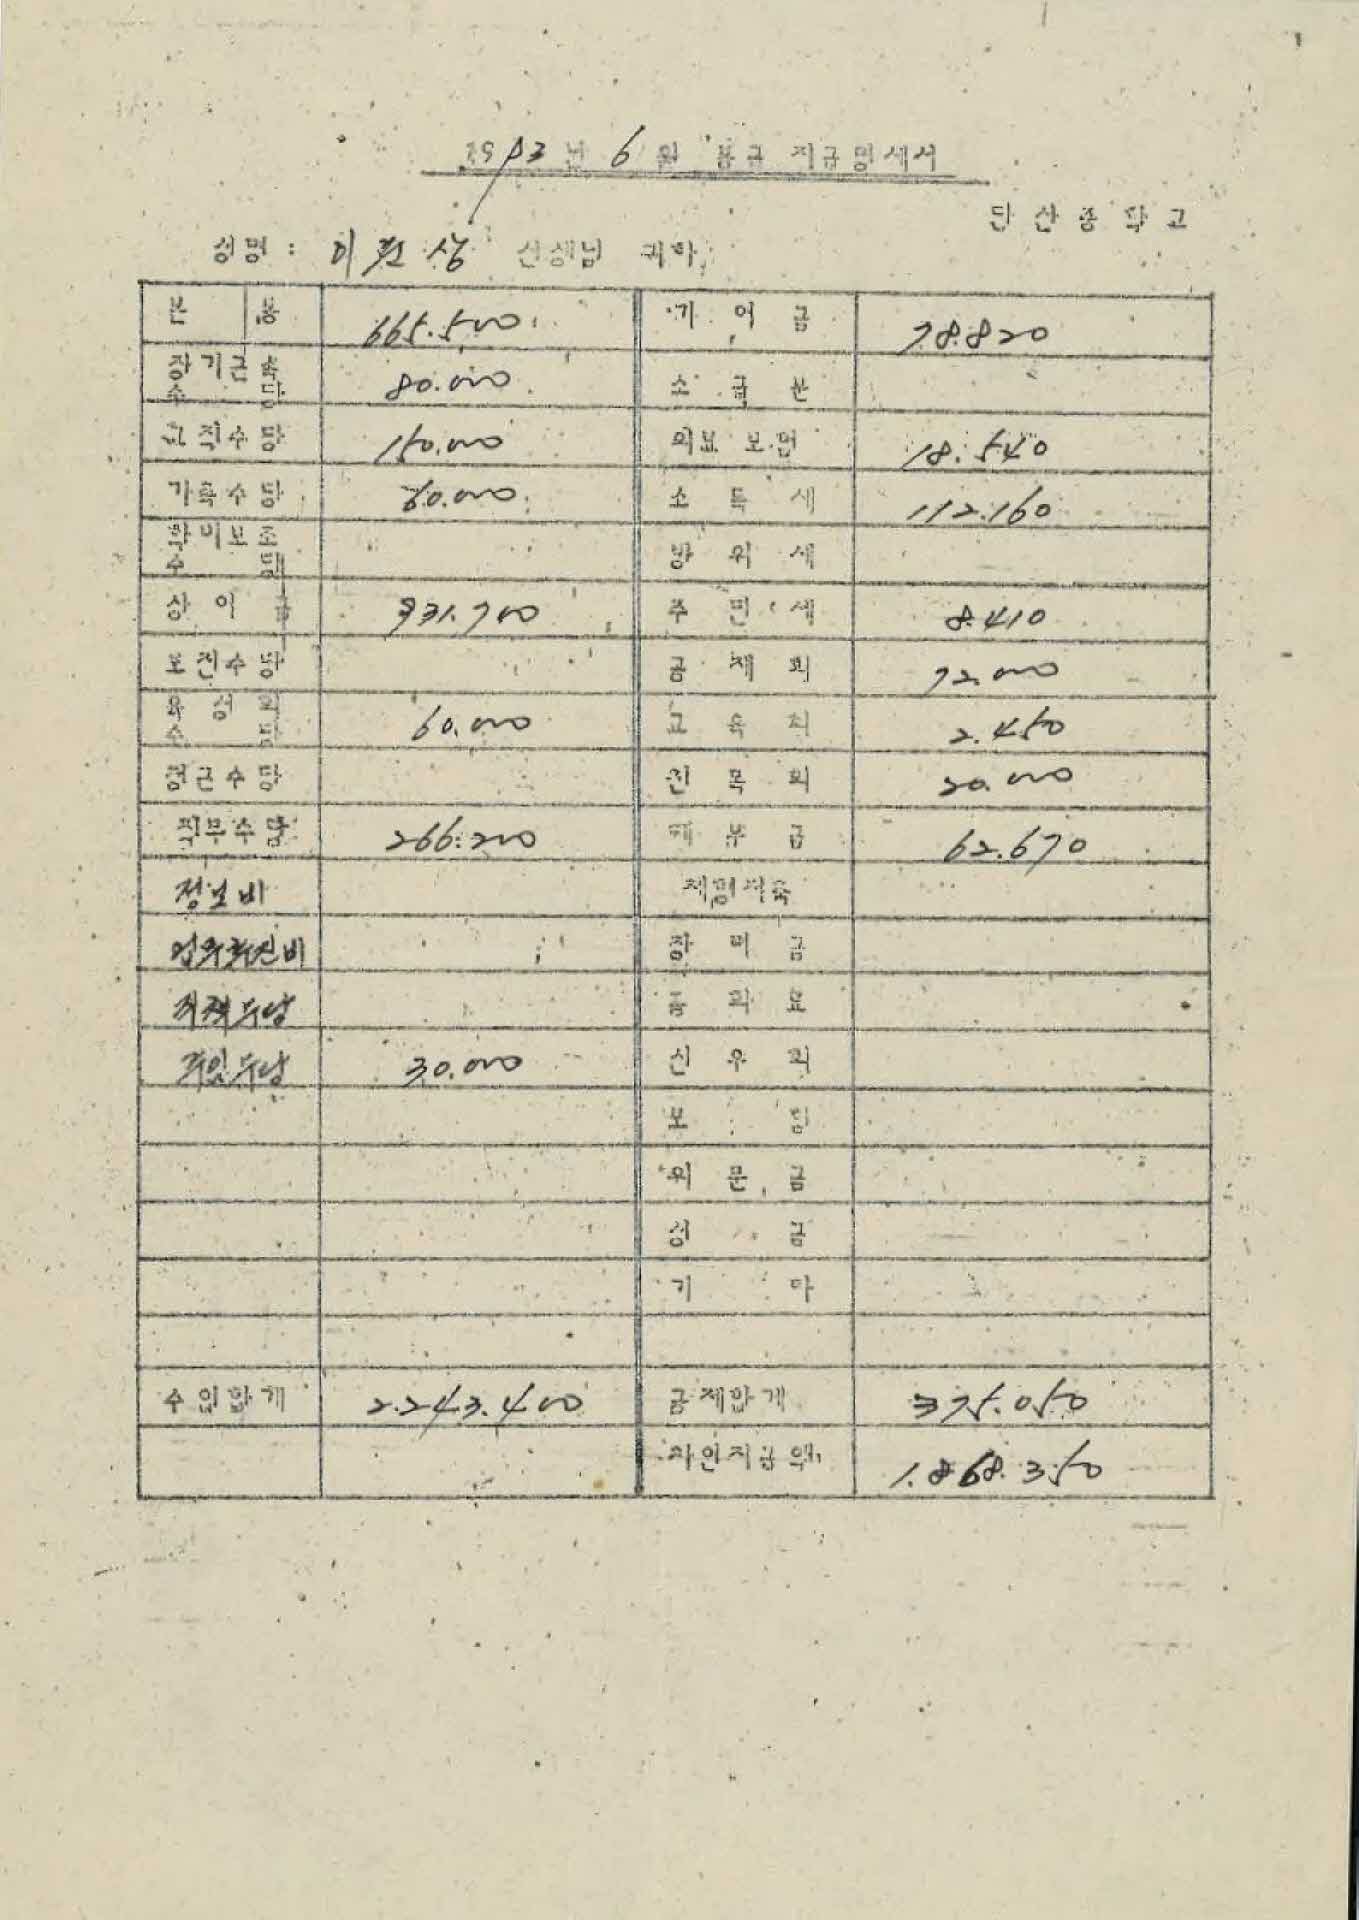 1993년 6월 봉급 지급명세서
단산중학교
성명: 이 상 선생님 귀하
본 봉 665.500 기 여 금 78.820
장기근속수당 80.000 소 급 분
교직수당 150.000 의료 보험 18.540
가족수당 60.000 소 득 세 112.160
학비보조수당 방 위 세
상 여 금 931.700 주 민 세 8.410
보전수당 공 제 회 72.000
육성회수당 60.000 교 육 회 2.450
정근수당 친 목 회 20.000
직무수당 266.200 대 부 금 62.670
정보비 재형저축
업무추진비 장 려 금
직책수당
주임수당 30.000 신 우 회
보 험
위 문 금
성 금
기 타
수입합계 2.243.400 공제합계 375.050
차인지급액 1.868.350